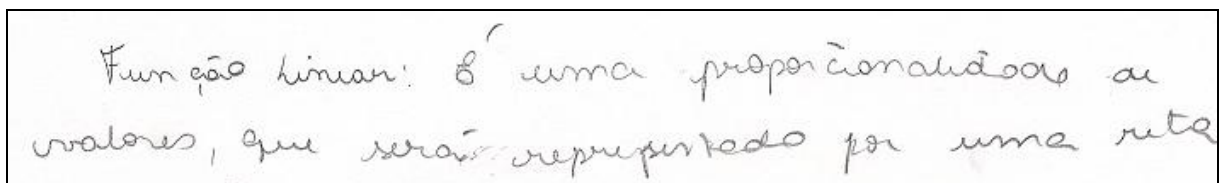 Função Linear: É uma proporcionalidade de
valores, que será representado por uma reta